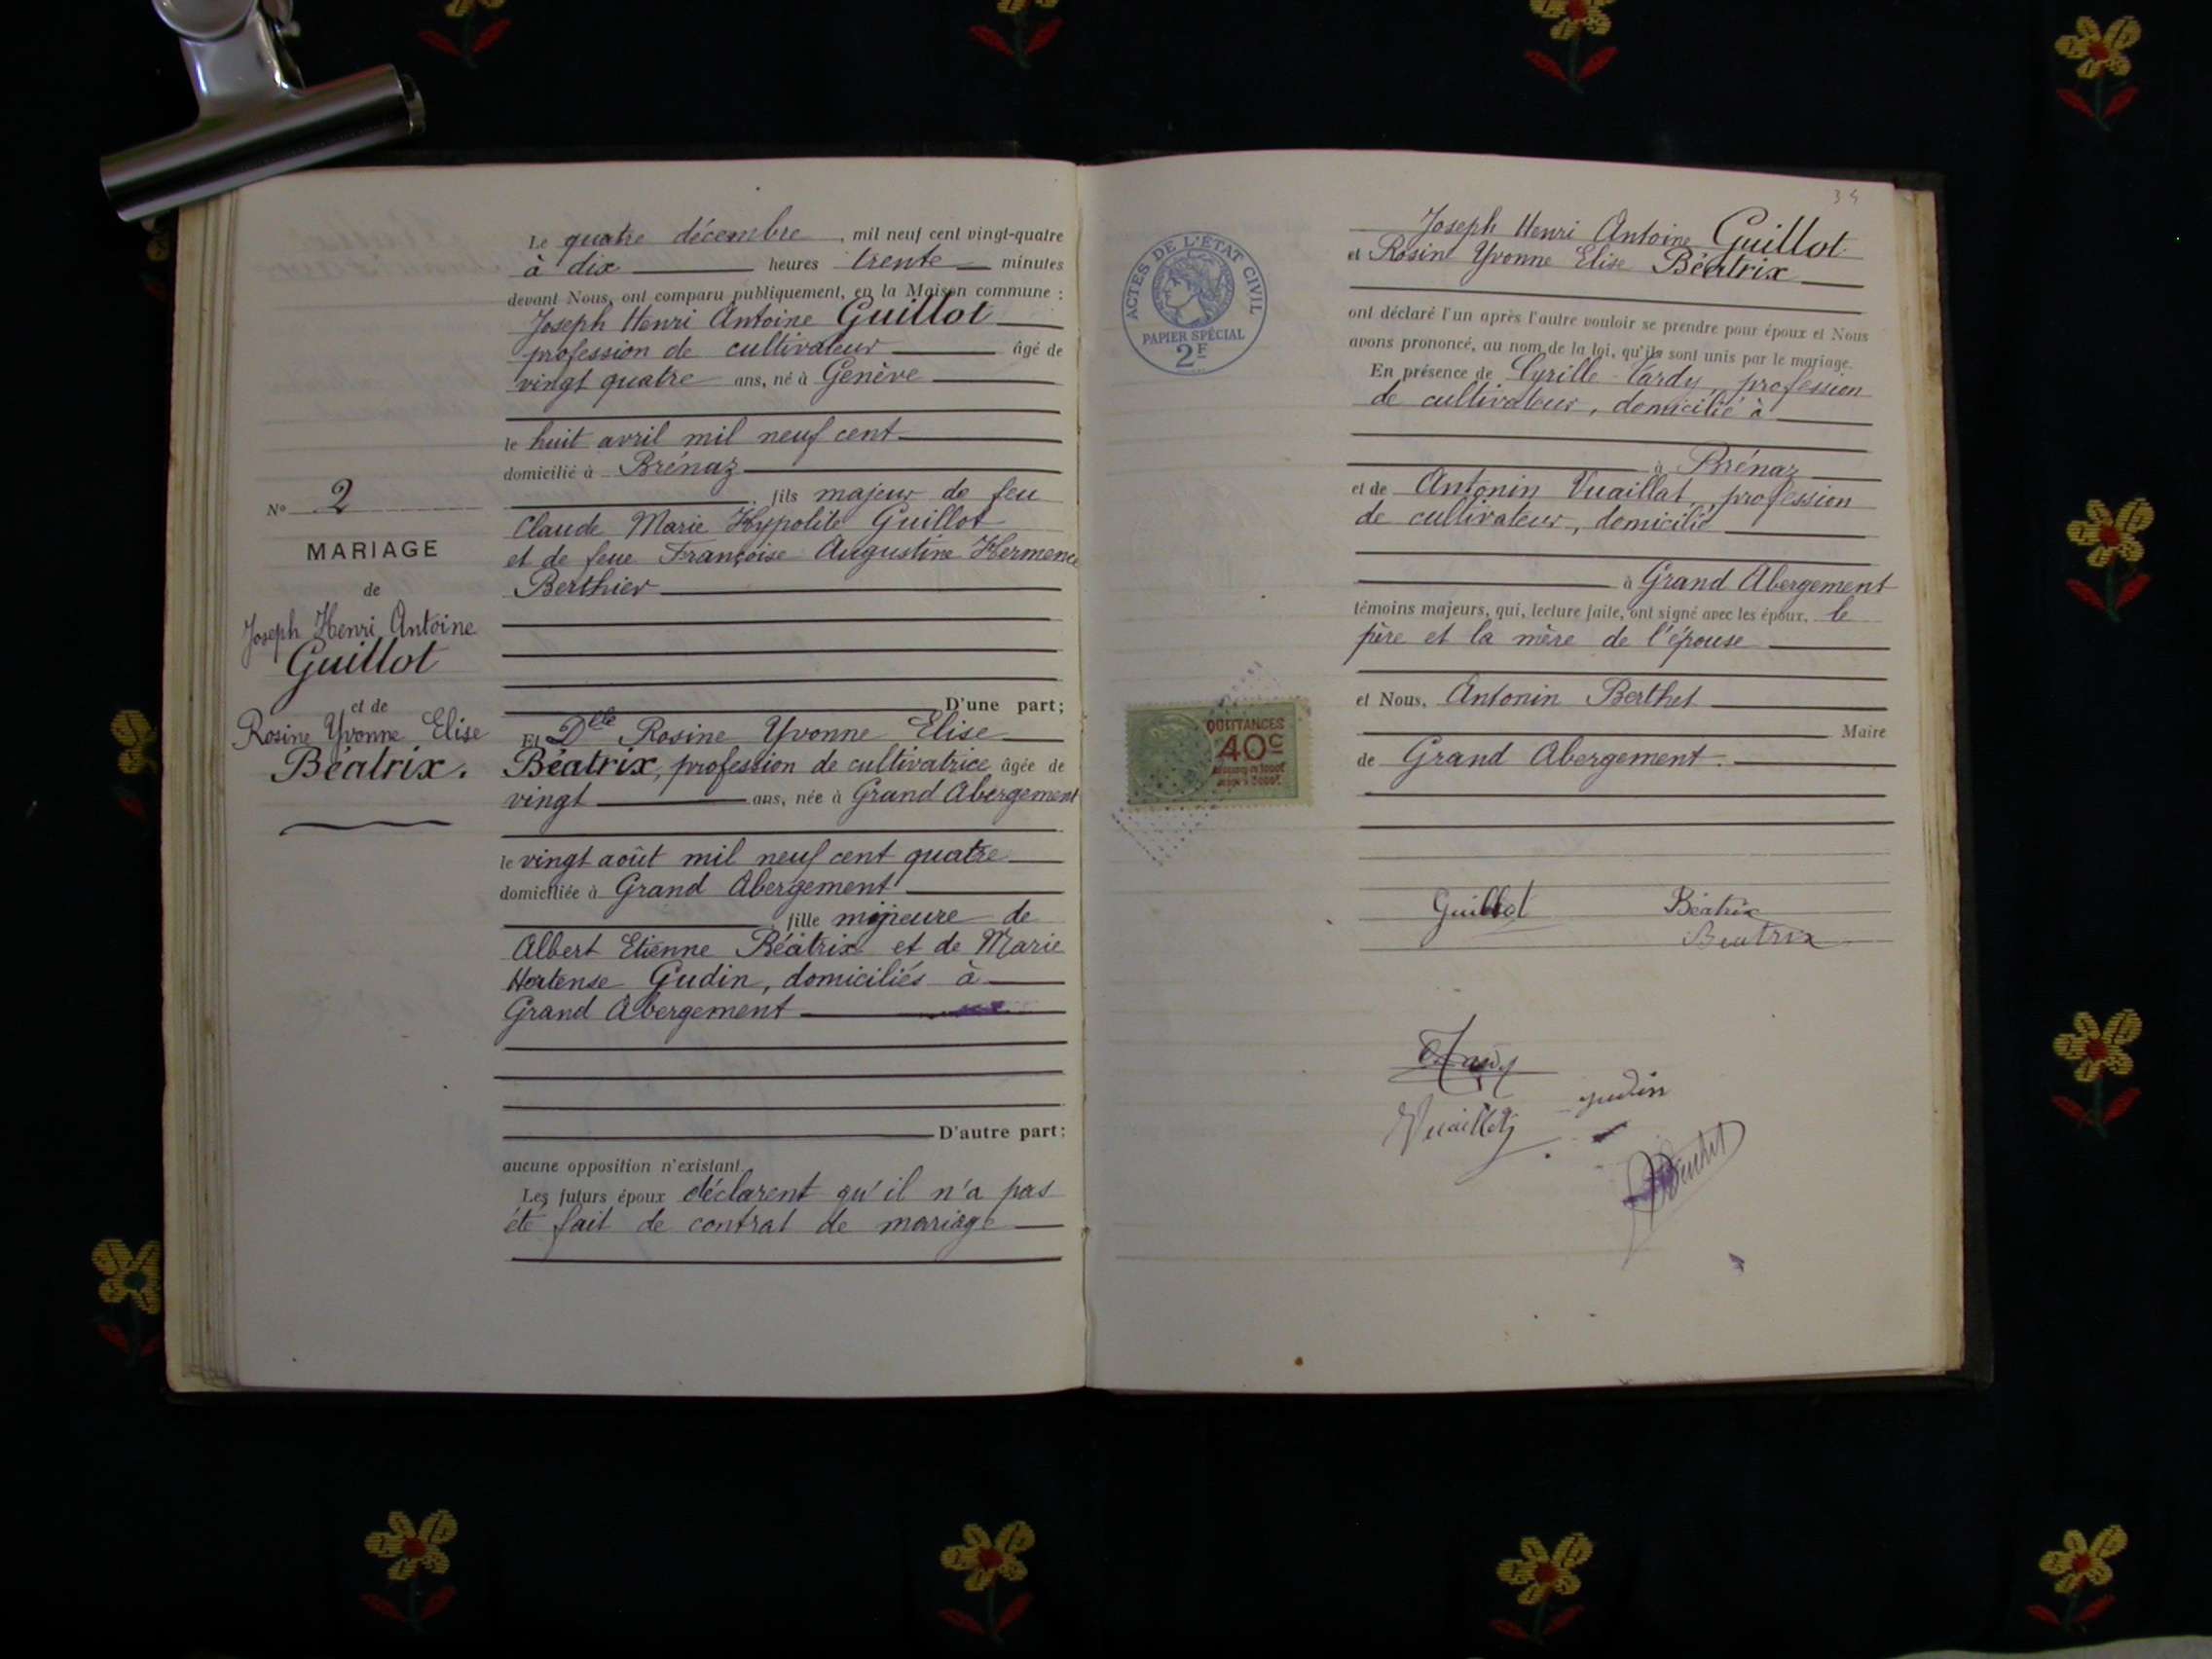 Le quatre décembre, mil neuf cent vingt-quatre
à dix heures trente minutes
devant Nous, ont comparu publiquement, en la Maison commune :
Joseph Henri Antoine Guillot
profession de cultivateur âgé de
vingt quatre ans, né à Genève
le huit avril mil neuf cent
domicilié à Brénaz
fils majeur de feu
Claude Marie Hypolite Guillot
et de feue Françoise Augustine Hermence
Berthier
D'une part;
Et Dlle Rosine Yvonne Elise
Béatrix, profession de cultivatrice âgée de
vingt ans, née à Grand Abergement
le vingt août mil neuf cent quatre
domiciliée à Grand Abergement
fille mineure de
Albert Etienne Béatrix et de Marie
Hortense Gudin, domiciliés à
Grand Abergement
D'autre part;
aucune opposition n'existant.
Les futurs époux déclarent qu'il n'a pas
été fait de contrat de mariage
No 2
MARIAGE
de
Joseph Henri Antoine
Guillot
et de
Rosine Yvonne Elise
Béatrix.
34
ACTES DE L'ÉTAT CIVIL
PAPIER SPÉCIAL
2F
Joseph Henri Antoine Guillot
et Rosine Yvonne Elise Béatrix
ont déclaré l'un après l'autre vouloir se prendre pour époux et Nous
avons prononcé, au nom de la loi, qu'ils sont unis par le mariage.
En présence de Cyrille Tardy, profession
de cultivateur, domicilié à
à Brénaz
et de Antonin Vuaillat, profession
de cultivateur, domicilié
à Grand Abergement
témoins majeurs, qui, lecture faite, ont signé avec les époux, le
père et la mère de l'épouse
et Nous, Antonin Berthet
Maire
de Grand Abergement.
QUITTANCES
40c
Guillot Béatrix
Béatrix
Tardy
Vuaillat gudin
Berthet